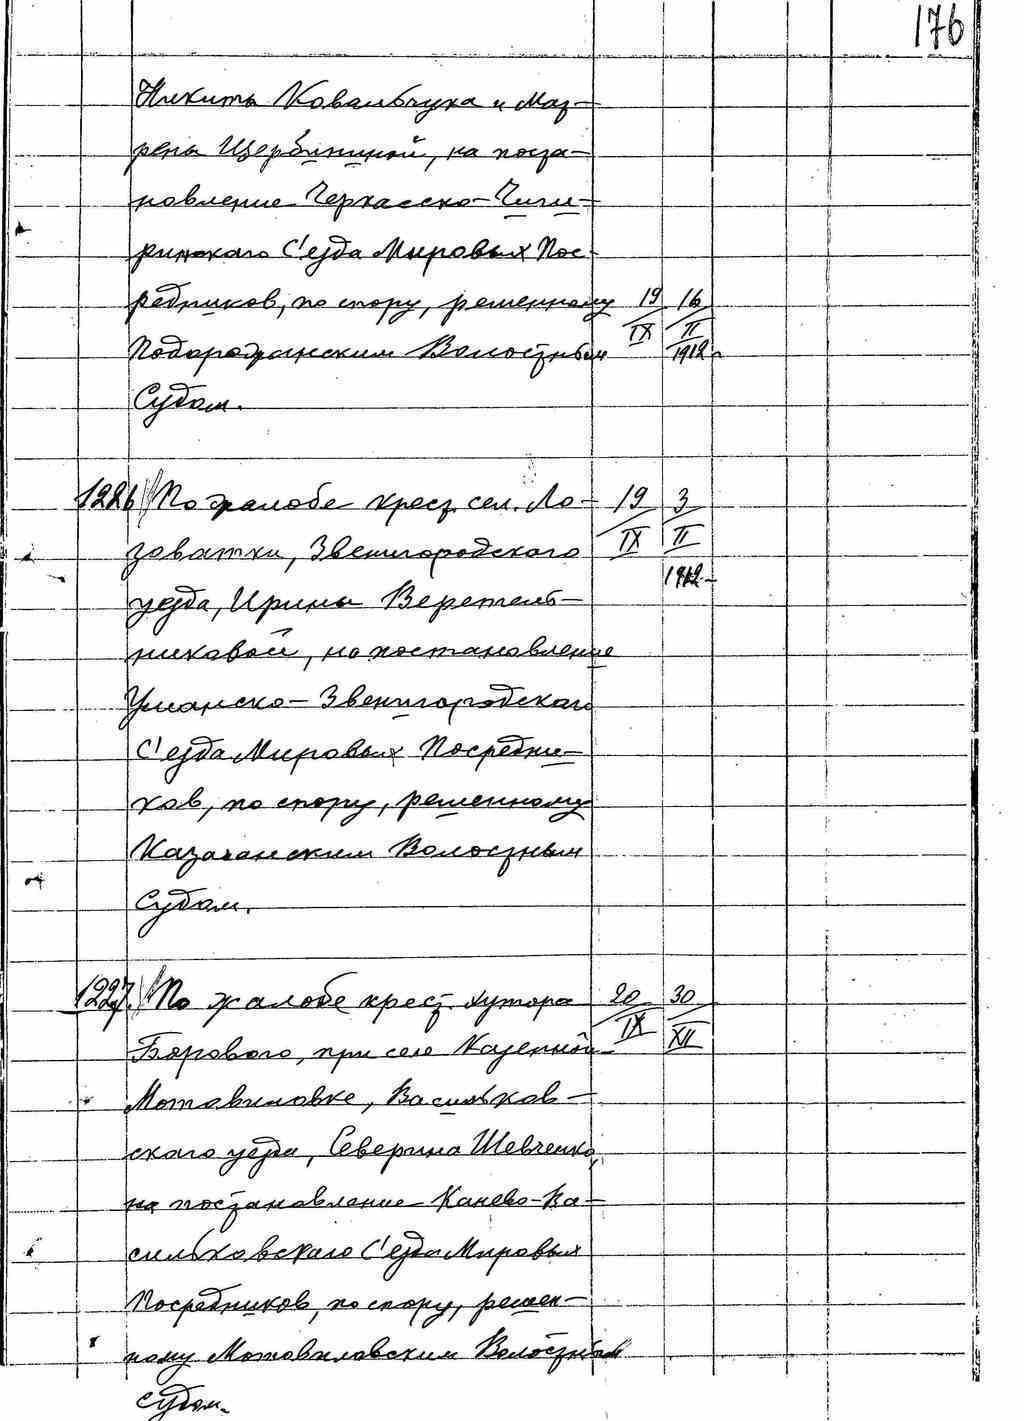 176
Никиты Ковальчука и Мат-
рены Щербининой, на поста-
новление Черкасско-Чиги-
ринского С'езда Мировых Пос-
редников, по спору, решенному 19 16
Подорожанским Волостным IX II 1912.
Судом.
1226 По жалобе крест. сел. Ло- 19 3
заватки, Звенигородского IX II
уезда, Ирины Веретель- 1912
никовой, на постановление
Уманско-Звенигородскаго
С'езда Мировых Посредни-
ков, по спору, решенному
Казачанским Волостным
Судом.
1227. По жалобе крест. хутора 20 30
Борового, при селе Казенной IX XII
Мотовиловке, Васильков-
скаго уезда, Северина Шевченко,
на постановление Канево-Ва-
сильковскаго С'езда Мировых
Посредников, по спору, решен-
ному Мотовиловским Волостным
судом.